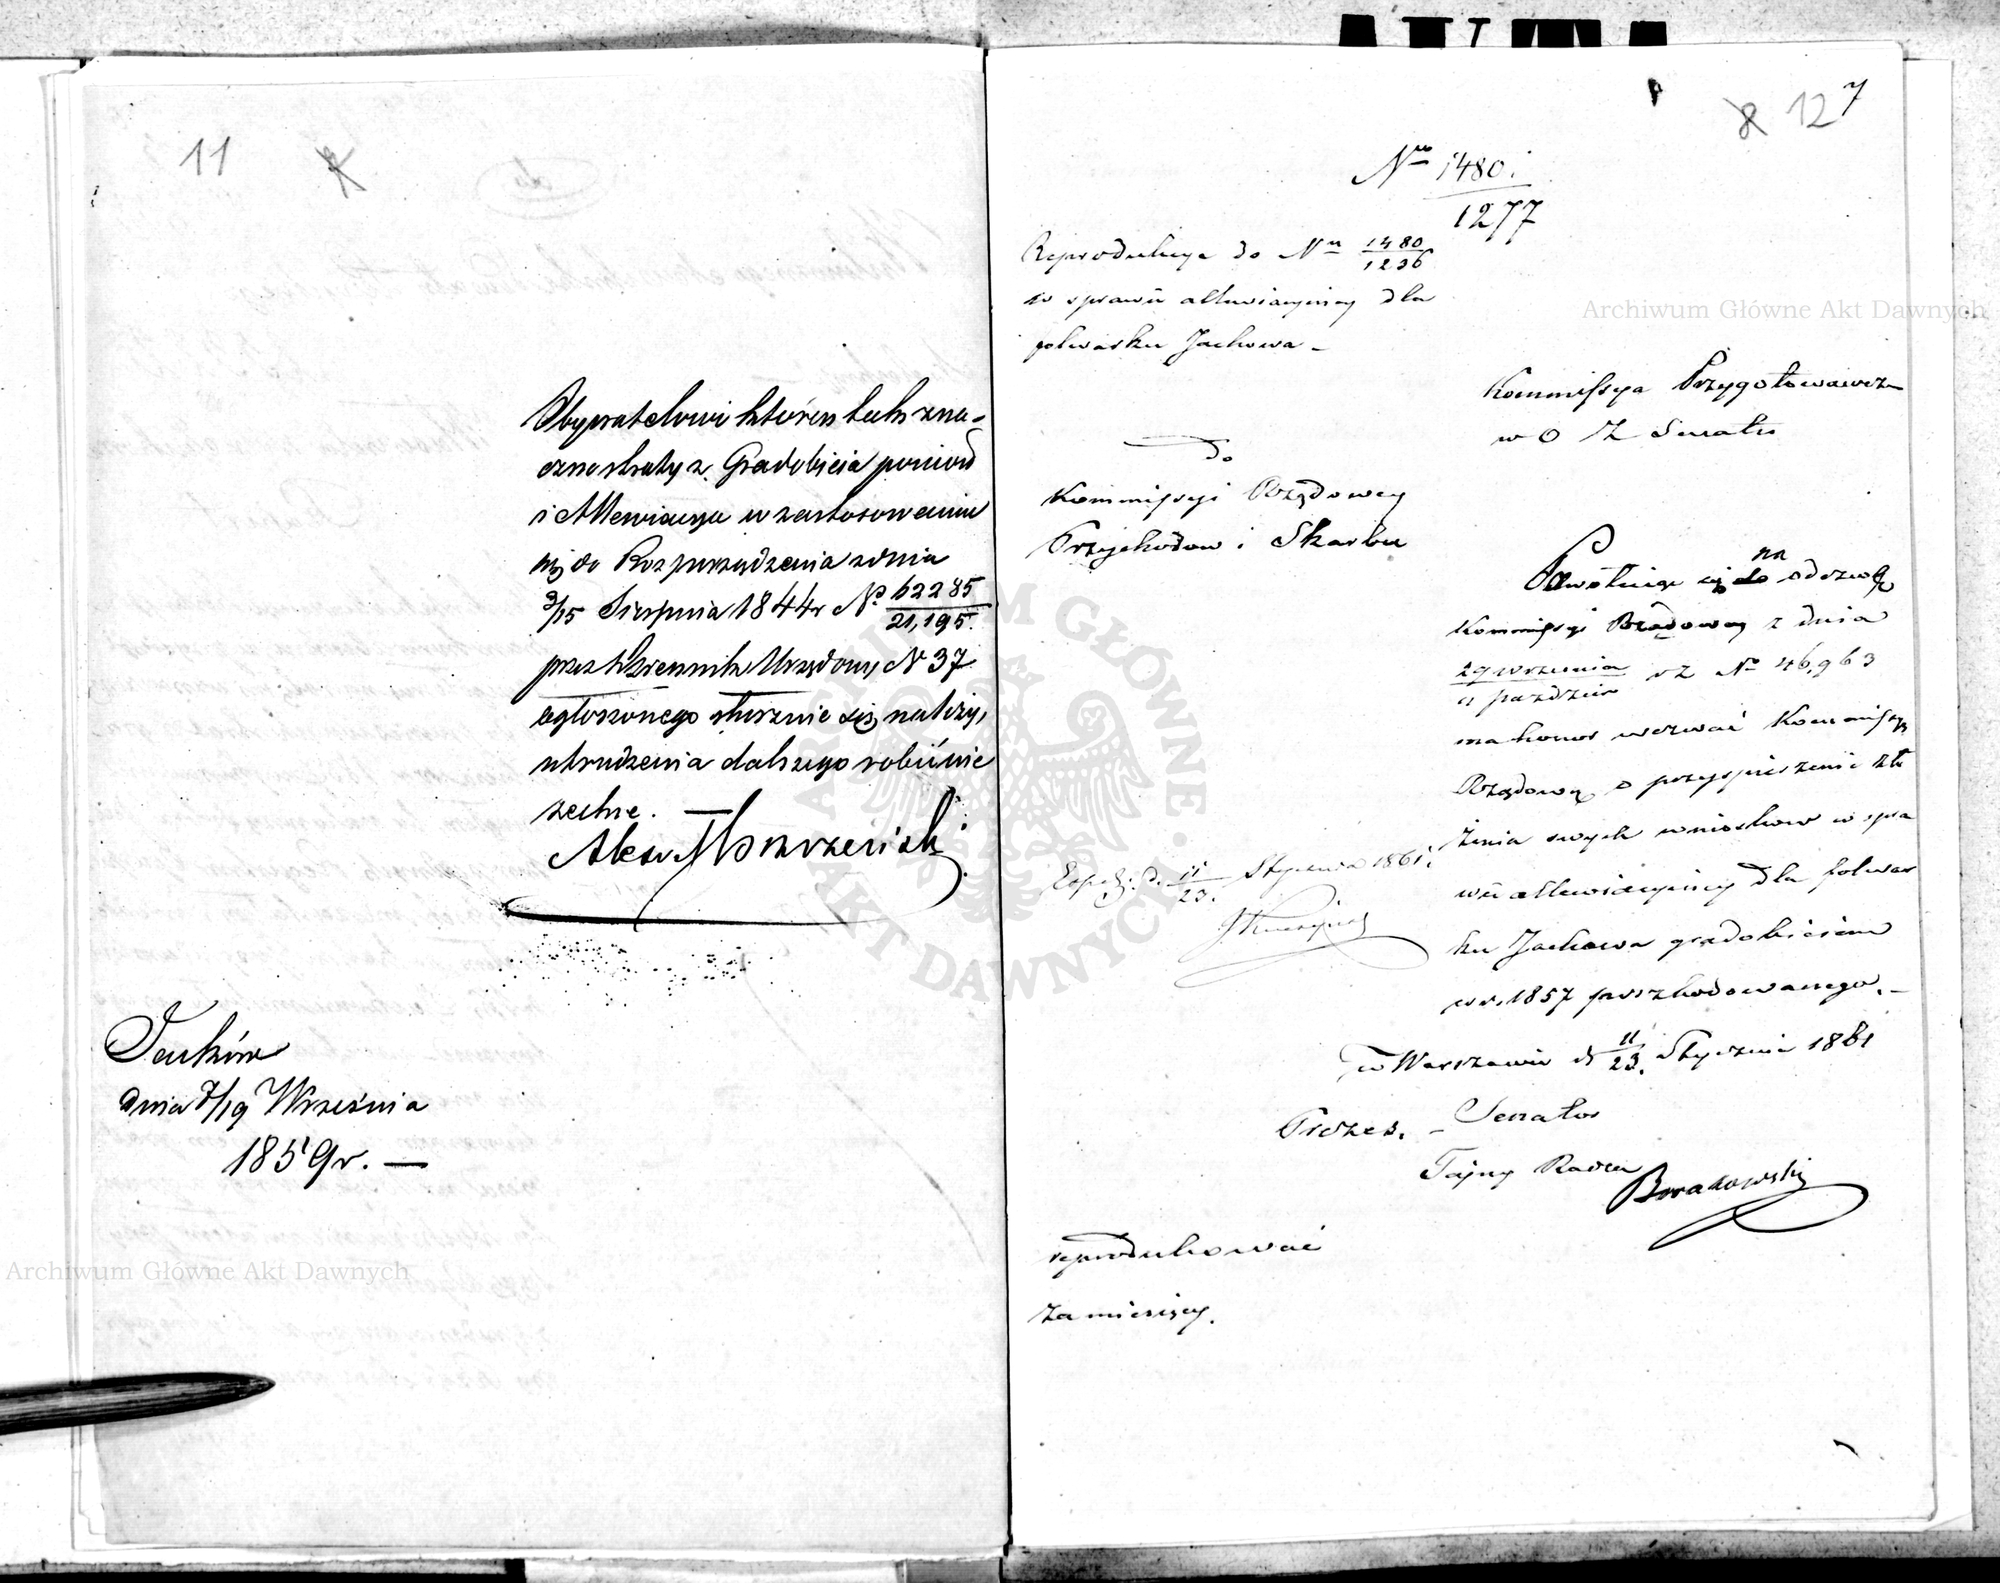 11
Obywatelowi któren tak zna-
czne straty z Gradobicia poniosł
i Allewiacya w zastosowaniu
się do Rozporządzenia z dnia
3/15 Sierpnia 1844r No 62285/21,195.
przez Dziennik Urzędowy N 37
ogłoszonego słusznie się należy,
utrudzenia dalszego robić nie
zechce.
Alex
Jacków
dnia 7/19 Września
1859r. —
8 12 7
Nro 1480/1277
Reprodukcya do Nru 1480/1236
w sprawie allewiacyjnej dla
folwarku Jackowa –
do
Kommissyi Rządowey
Przychodow i Skarbu
Exp: d. 11/23. Stycznia 1861.
reprodukować
za miesięcy.
Kommissya Przygotowawcza
w O Z Senatu
Powołując się do na odezwę
Kommissyi Rządowey z dnia
29 września/11 paździer r Z No 46,963
ma honor wezwać Kommissyą
Rządową o przyspieszenie zło
żenia swych wniosków w spra
wie allewiacyjney dla folwar
ku Jackowa gradobiciem
w r. 1857 poszkodowanego. –
w Warszawie d 11/23. Stycznia 1861
Prezes. – Senator
Tajny Radca
Archiwum Główne Akt Dawnych
Archiwum Główne Akt Dawnych
ARCHIWUM GŁÓWNE AKT DAWNYCH